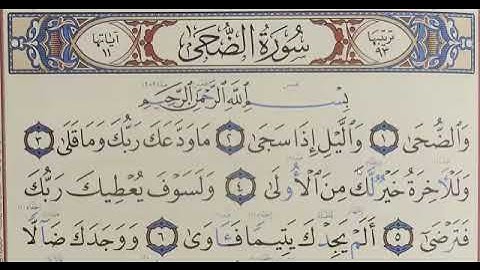 ترتيبها ٩٣
سُورَةُ الضُّحَىٰ
آيَاتُهَا ١١
بِسْمِ اللَّهِ الرَّحْمَٰنِ الرَّحِيمِ
وَالضُّحَىٰ ١ وَاللَّيْلِ إِذَا سَجَىٰ ٢ مَا وَدَّعَكَ رَبُّكَ وَمَا قَلَىٰ ٣
وَلَلْآخِرَةُ خَيْرٌ لَّكَ مِنَ الْأُولَىٰ ٤ وَلَسَوْفَ يُعْطِيكَ رَبُّكَ
فَتَرْضَىٰ ٥ أَلَمْ يَجِدْكَ يَتِيمًا فَـَٔاوَىٰ ٦ وَوَجَدَكَ ضَآلًّا